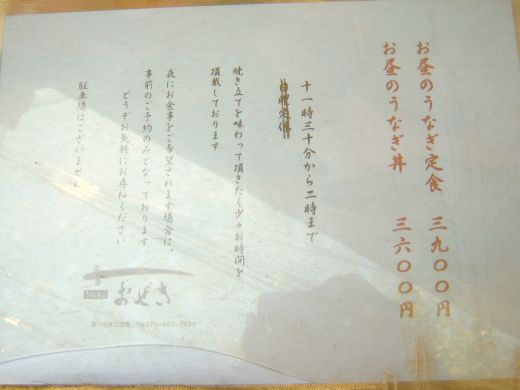 お昼のうなぎ定食　三九〇〇円
お昼のうなぎ丼　三六〇〇円
十一時三十分から二時まで
焼き立てを味わって頂きたく少々お時間を
頂戴しております
夜にお食事をご希望されます場合は、
事前のご予約のみとなっております
どうぞお気軽にお尋ねください
駐車場はございません
おぜき